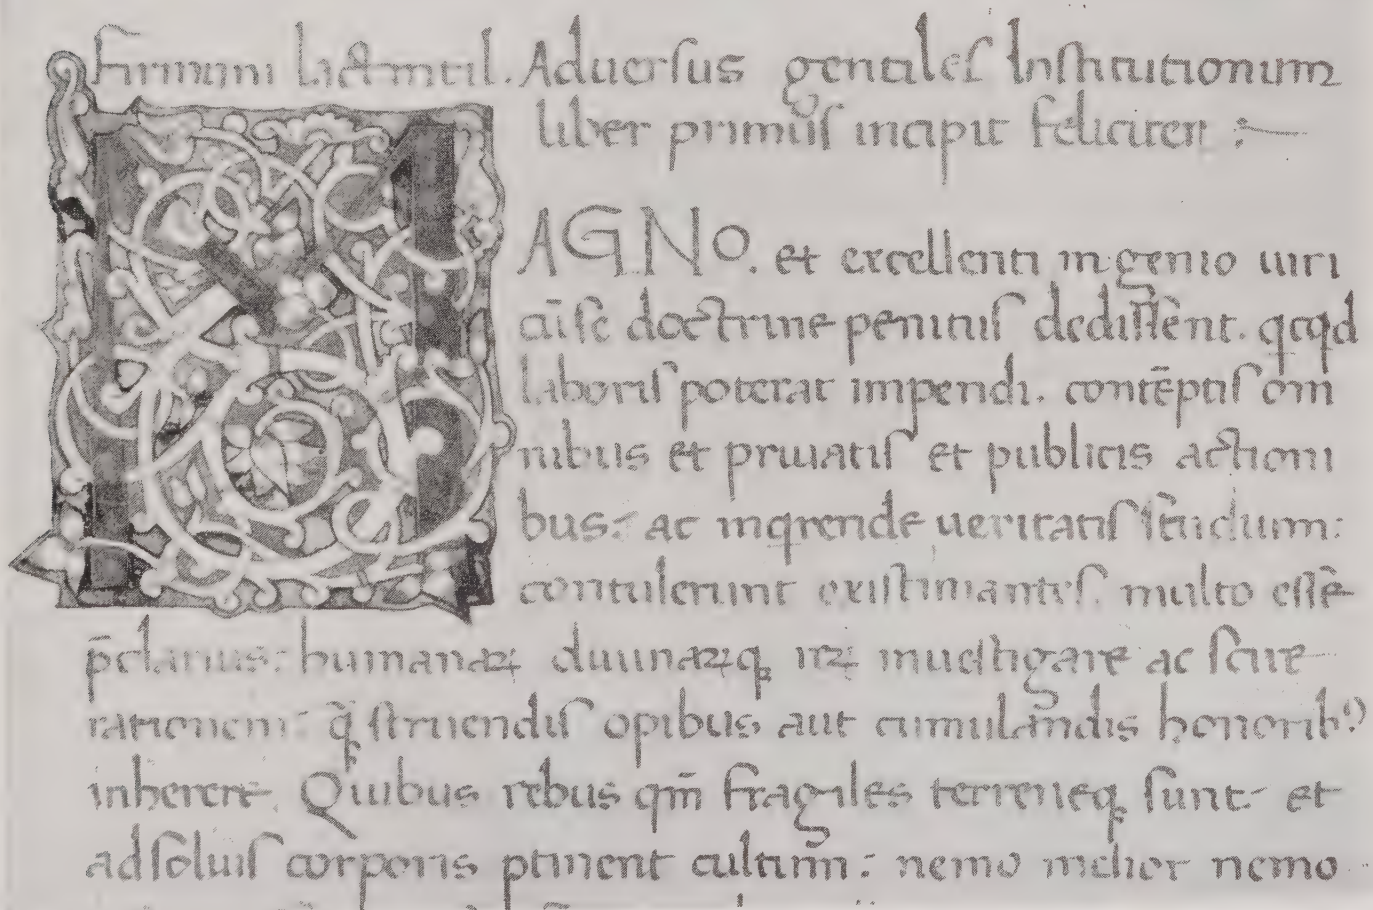 Firmiani lactantii. Aduersus gentiles Institutionum
liber primus incipit feliciter :
MAGNO. et excellenti ingenio uiri
cū se doctrine penitus dedissent. qcqd
laboris poterat impendi. contēptis om
nibus et priuatis et publicis actioni
bus: ac inqrende ueritatis studium:
contulerunt existimantes. multo esse
p̄clarius: humanaꝝ diuinaꝝqꝫ rerꝝ inuestigare ac scire
rationem: q̄ struendis opibus aut cumulandis honoribꝰ
inherere. Quibus rebus qm̄ fragiles terreneqꝫ sunt: et
ad solius corporis ptinent cultum̄: nemo melior nemo